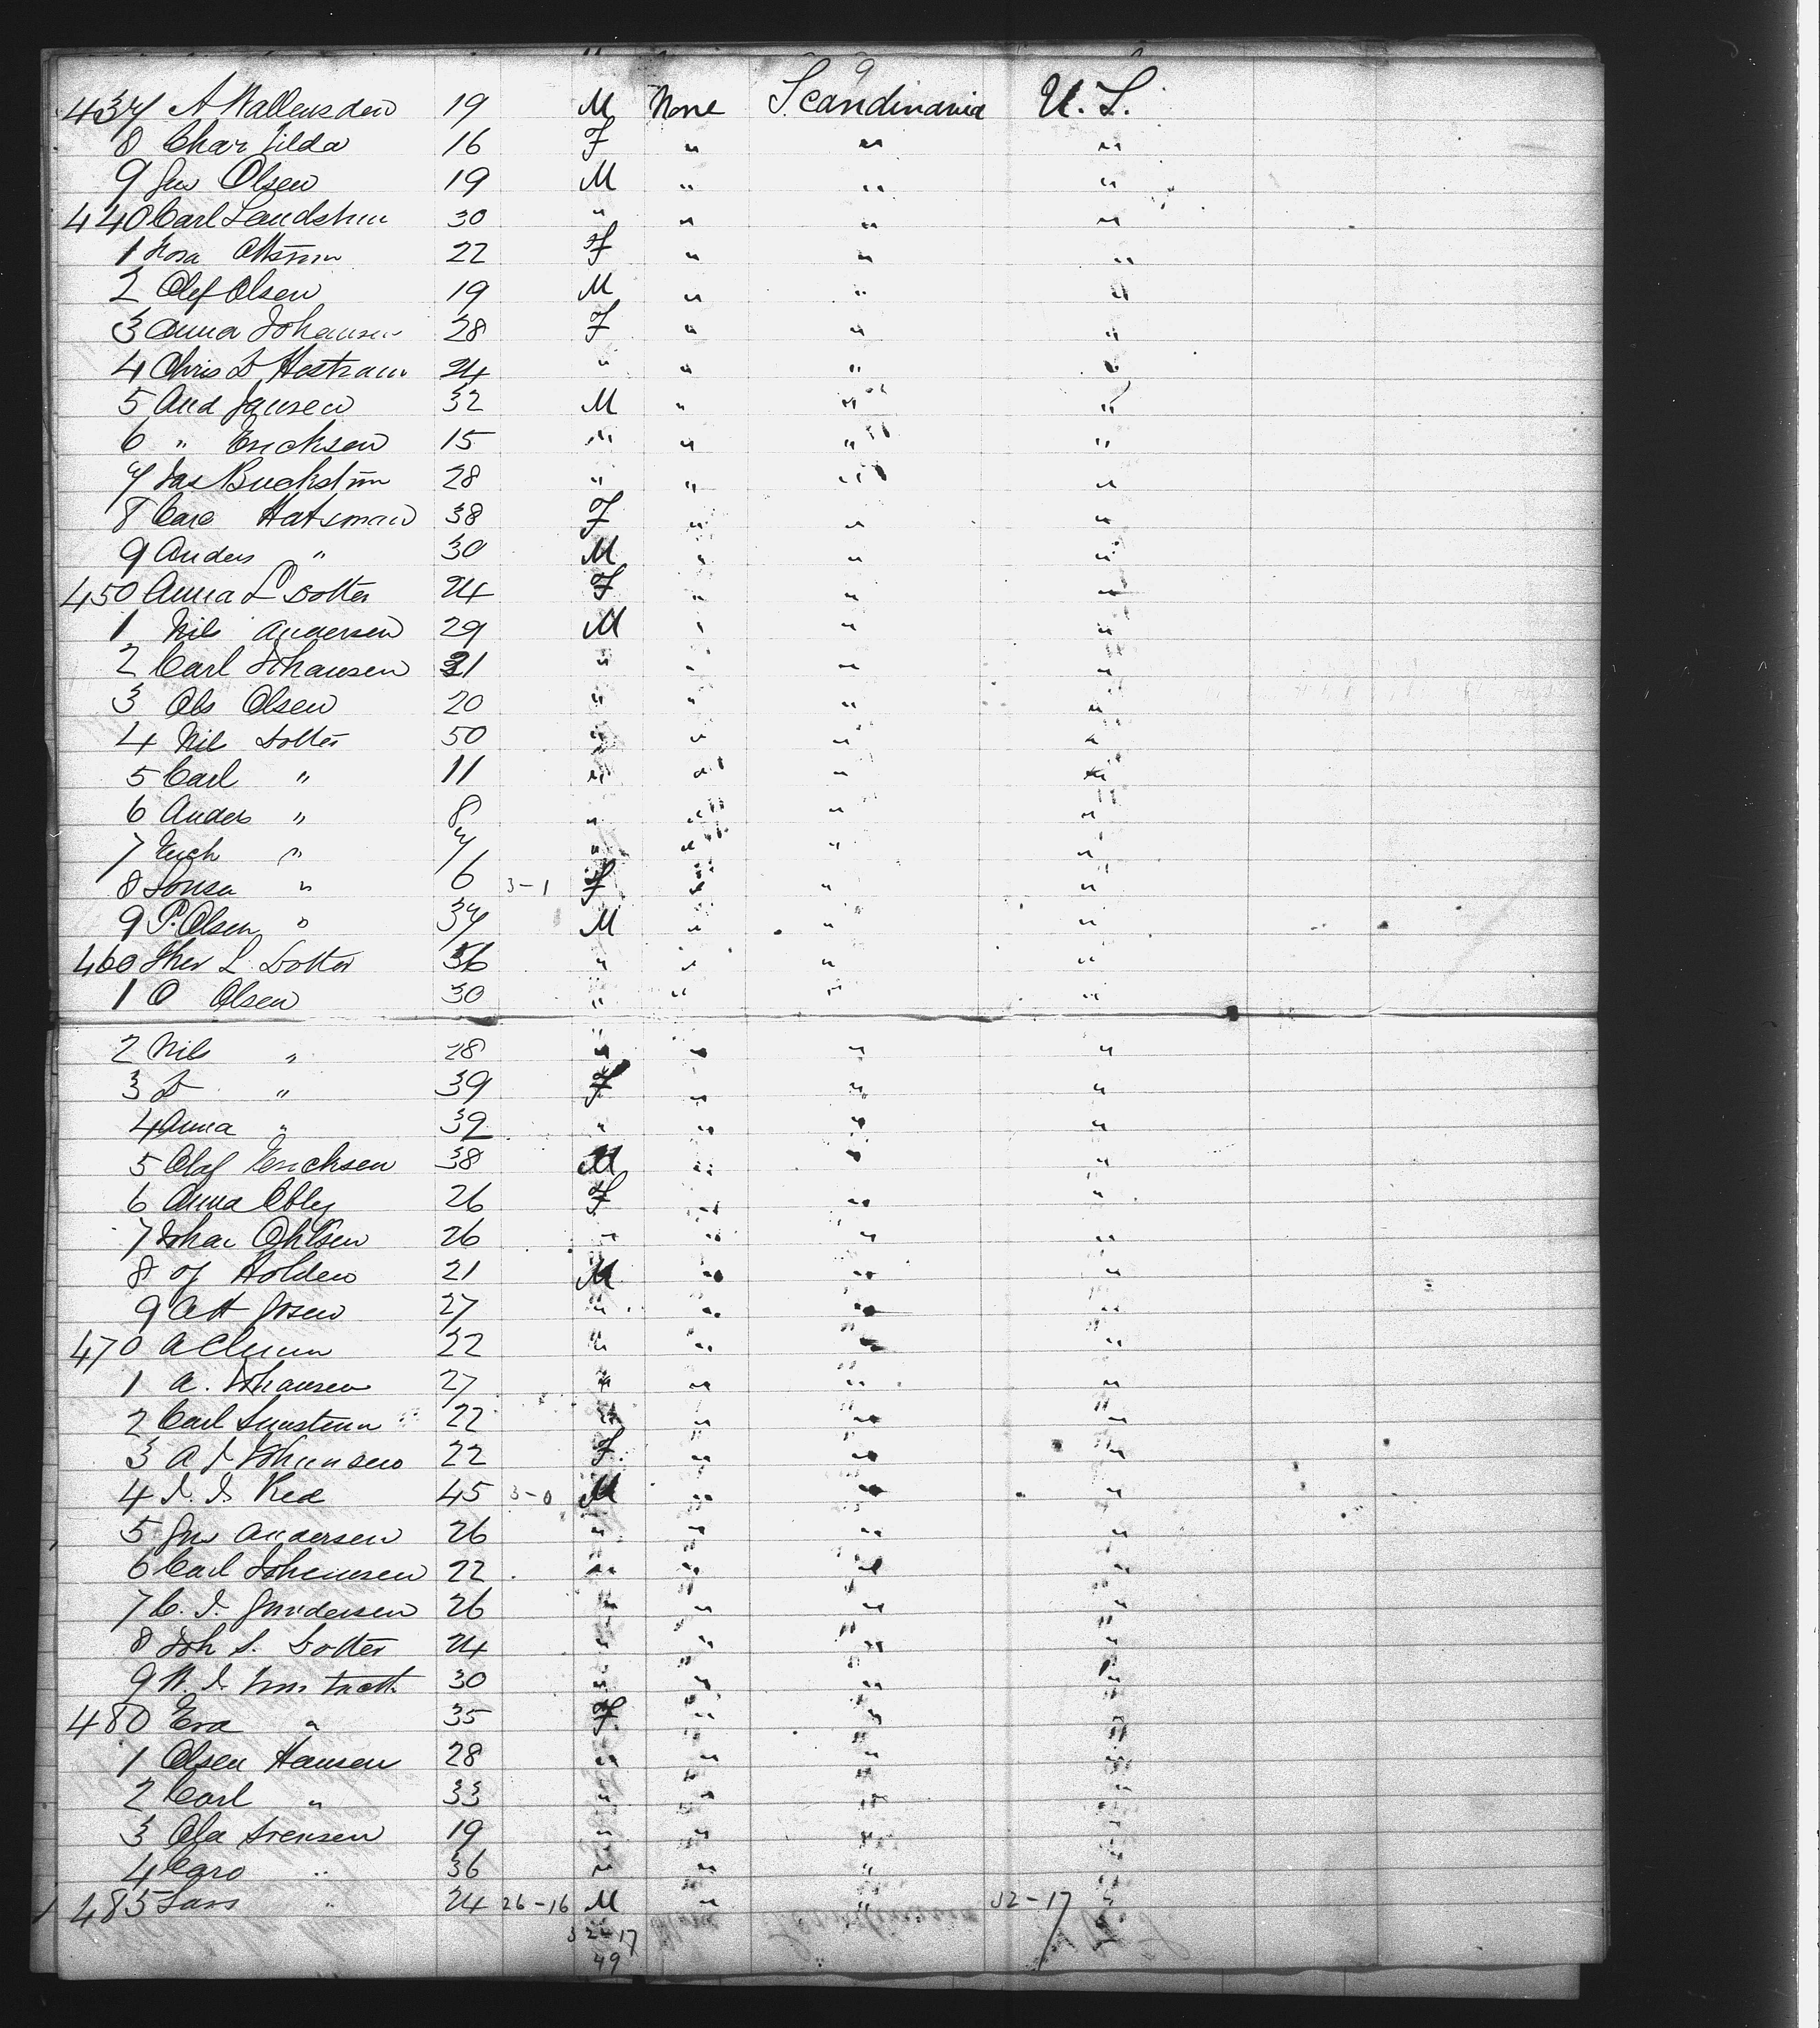 9
437 A Wallensden 19 M None Scandinavia U. S.
8 Char Tilda 16 F " " "
9 Jno Olsen 19 M " " "
440 Carl Landstrm 30 " " " "
1 22 F " " "
2 Olef Olsen 19 M " " "
3 Anna Johansen 28 F " " "
4 Chris D 24 " " " "
5 And Jansen 32 M " " "
6 " Ericksen 15 " " " "
7 Jas Buckstrm 28 " " " "
8 Caro Hatsman 38 F " " "
9 Anders " 30 M " " "
450 Anna L Dotter 24 F " " "
1 Nils Andersen 29 M " " "
2 Carl Johansen 21 " " " "
3 Obs Olsen 20 " " " "
4 Nils Dotter 50 " " " "
5 Carl " 11 " " " "
6 Anders " 8 " " " "
7 Erich " 7 " " " "
8 " 6 3-1 F " " "
9 P. Olsen " 37 M " " "
460 L. Dotter 36 " " " "
1 O Olsen 30 " " " "
2 Nils " 28 " " " "
3 D " 39 F " " "
4 Anna " 39 " " " "
5 Olaf Ericksen 38 M " " "
6 Anna 26 F " " "
7 Johan Ohlsen 26 " " " "
8 Holden 21 M " " "
9 27 " " " "
470 22 " " " "
1 A. Johansen 27 " " " "
2 Carl 22 " " " "
3 A J Johansen 22 F " " "
4 J. J. 45 3-0 M " " "
5 Jno Andersen 26 " " " "
6 Carl Johansen 22 " " " "
7 C. J. Gundersen 26 " " " "
8 Joh S. Dotter 24 " " " "
9 30 " " " "
480 Eva " 35 F " " "
1 Olsen Hansen 28 " " " "
2 Carl " 33 " " " "
3 Ola Svensen 19 " " " "
4 Caro " 36 " " " "
485 Lars " 24 26-16 M " " 32-17 "
32-17
49